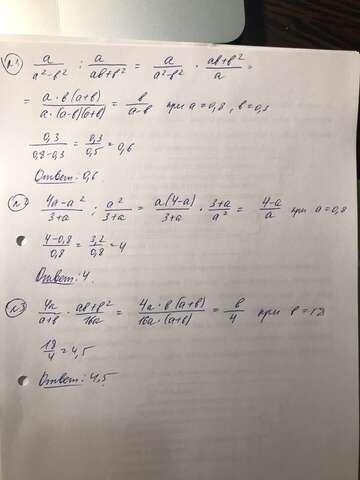 №1 a/(a²-b²) : a/(ab+b²) = a/(a²-b²) · (ab+b²)/a =
= (a·b(a+b))/(a·(a-b)(a+b)) = b/(a-b) при a=0,8, b=0,3
0,3/(0,8-0,3) = 0,3/0,5 = 0,6
Ответ: 0,6.
№2 (4a-a²)/(3+a) : a²/(3+a) = a(4-a)/(3+a) · (3+a)/a² = (4-a)/a при a=0,8
(4-0,8)/0,8 = 3,2/0,8 = 4
Ответ: 4.
№3 4a/(a+b) · (ab+b²)/16a = (4a·b(a+b))/(16a·(a+b)) = b/4 при b=18
18/4 = 4,5
Ответ: 4,5